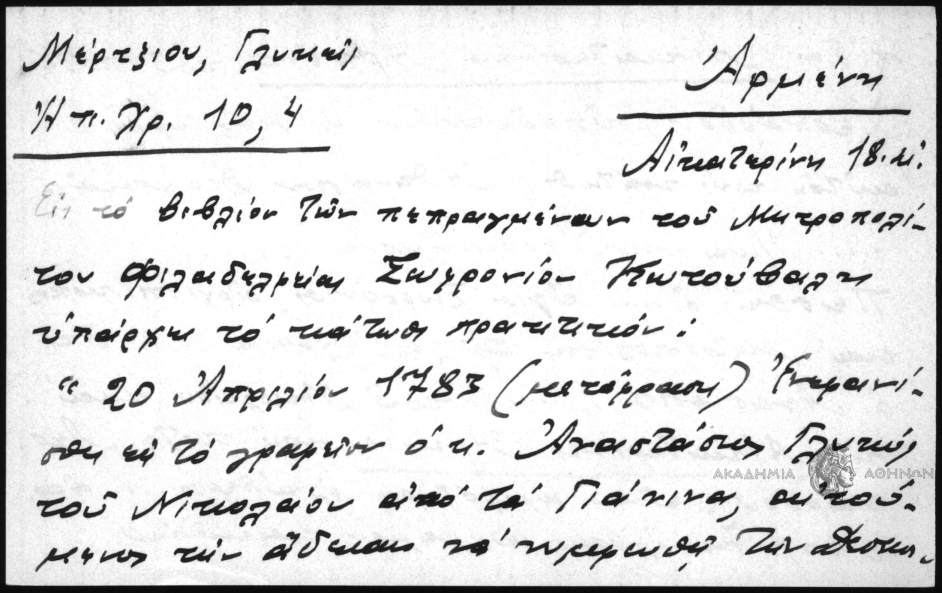 Μέρτζιου, Γλυκείς
Ἠπ. Χρ. 10, 4
Ἀρμένη
Αἰκατερίνη 18. αἰ.
Εἰς τό βιβλίον τῶν πεπραγμένων τοῦ Μητροπολί-
του Φιλαδελφείας Σωφρονίου Κουτούβαλη
ὑπάρχει τό κάτωθι πρακτικόν:
"20 Ἀπριλίου 1783 (μετάφρασις) Ἐνεφανί-
σθη εἰς τό γραφεῖον ὁ κ. Ἀναστάσιος Γλυκύς
τοῦ Νικολάου ἀπό τά Γιάνινα, αἰτού-
μενος τήν ἄδειαν νά νυμφευθῇ τήν
ΑΚΑΔΗΜΙΑ ΑΘΗΝΩΝ